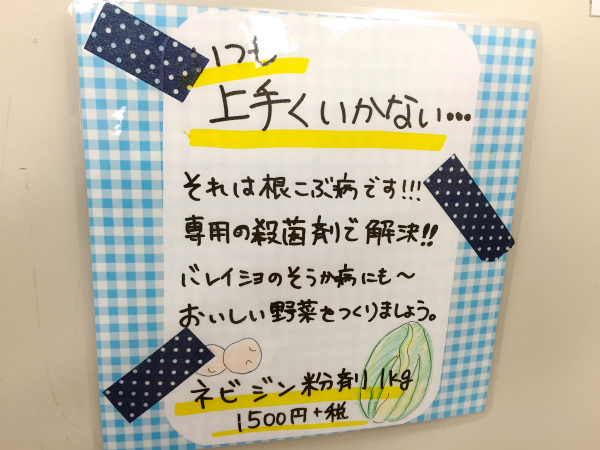 いつも
上手くいかない…
それは根こぶ病です!!!
専用の殺菌剤で解決!!
バレイショのそうか病にも〜
おいしい野菜をつくりましょう。
ネビジン粉剤 1kg
1500円+税